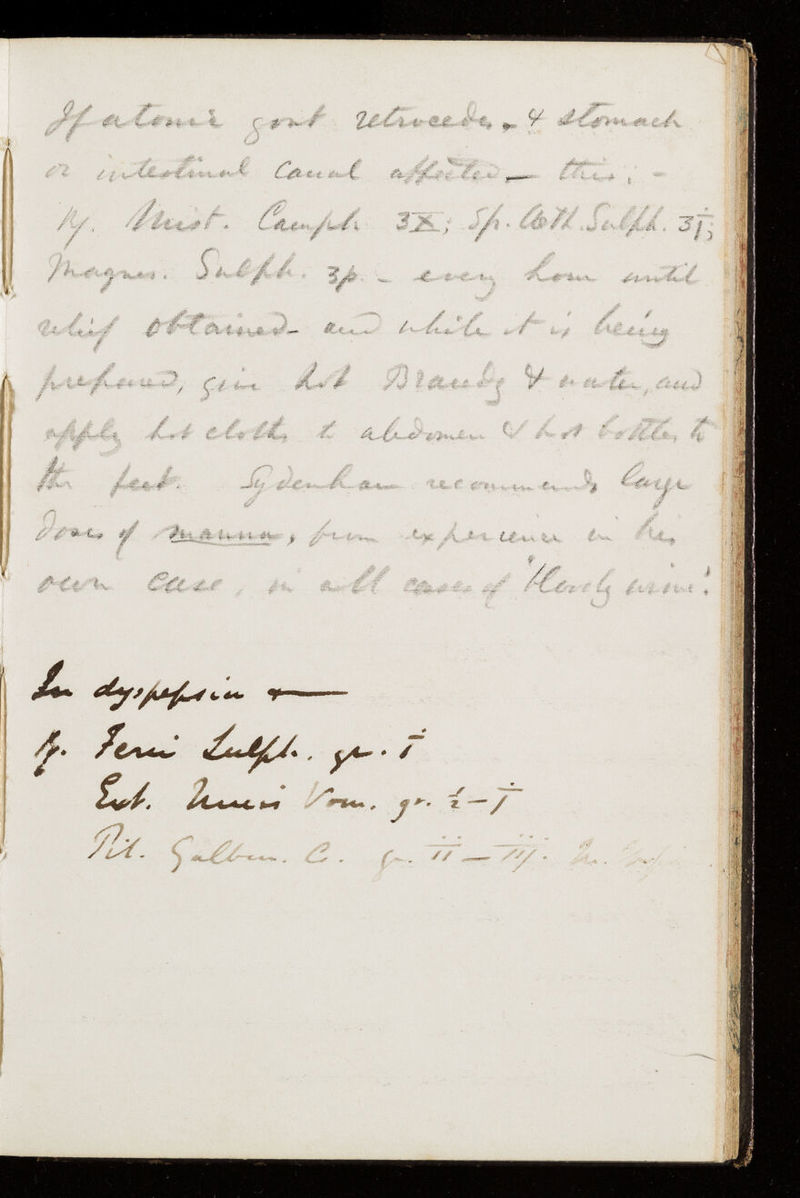 If atonic gout retrocedes, & stomach
or intestinal canal affected — this: -
℞. Mist. Camph. ʒX; Sp. Æth. Sulph. ʒi;
Magnes. Sulph. ʒp. - every hour until
relief obtained - and while it is being
prepared, give hot Brandy & water, and
apply hot cloths to abdomen & hot bottles to
the feet. Sydenham recommends large
doses of manna, from experience in his
own case, in all cases of "bloody urine".
In dyspepsia —
℞. Ferri Sulph. gr. i
Ext. Nucis Vom. gr. ½ - i
Pil. Galban. Co. gr. ii — iij. M.